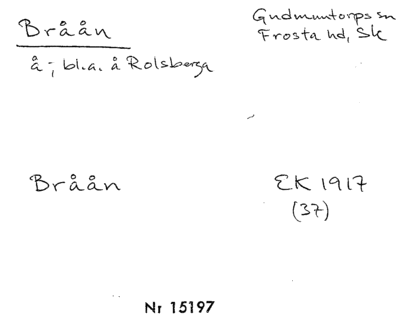 Bråån
Gudmuntorps sn
Frosta hd, Sk
å-; bl.a. å Rolsberga
Bråån
EK 1917
(37)
Nr 15197